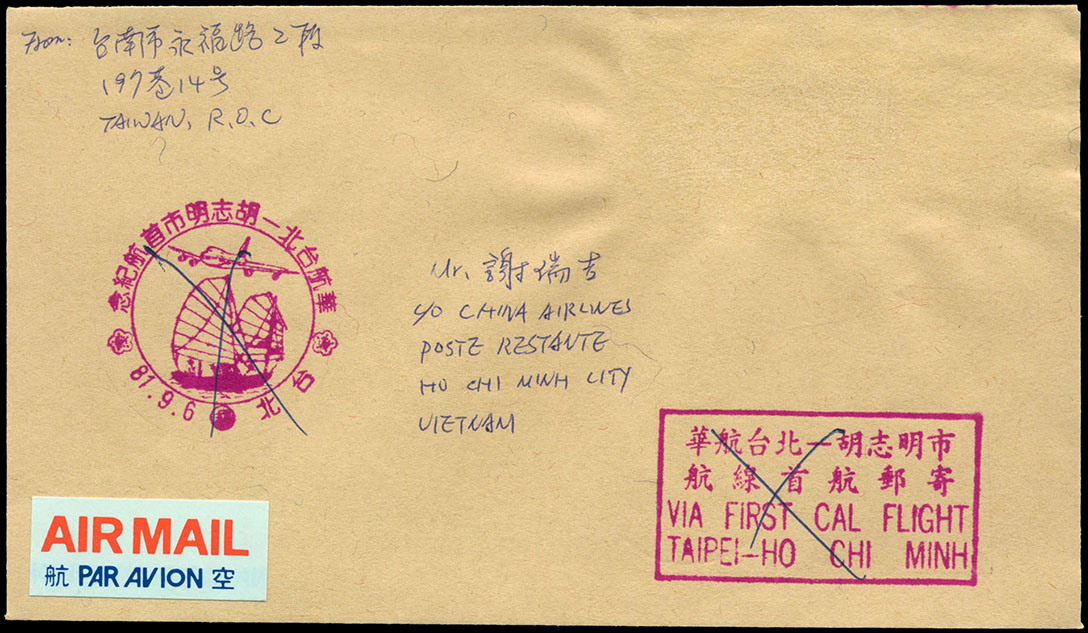 From: 台南市永福路2段
197巷14号
TAIWAN, R.O.C
華航台北一胡志明市首航紀念
81.9.6
台北
Mr. 謝瑞吉
c/o CHINA AIRLINES
POSTE RESTANTE
HO CHI MINH CITY
VIETNAM
華航台北一胡志明市
航線首航郵寄
VIA FIRST CAL FLIGHT
TAIPEI-HO CHI MINH
AIR MAIL
航 PAR AVION 空